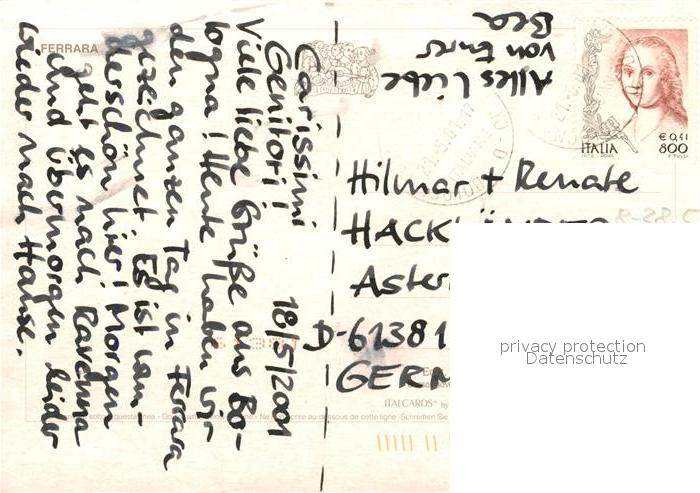 FERRARA
Carissimi
Genitori!
18/5/2001
Viele liebe Grüße aus Bo-
logna! Heute haben wir
den ganzen Tag in Ferrara
gezeichnet. Es ist wun-
derschön hier! Morgen
geht es nach Ravenna
und übermorgen leider
wieder nach Hause.
Alles Liebe
von Eurer
Bea
ITALIA
€ 0,41
800
Hilmar + Renate
D-61381
ITALCARDS® by
privacy protection
Datenschutz